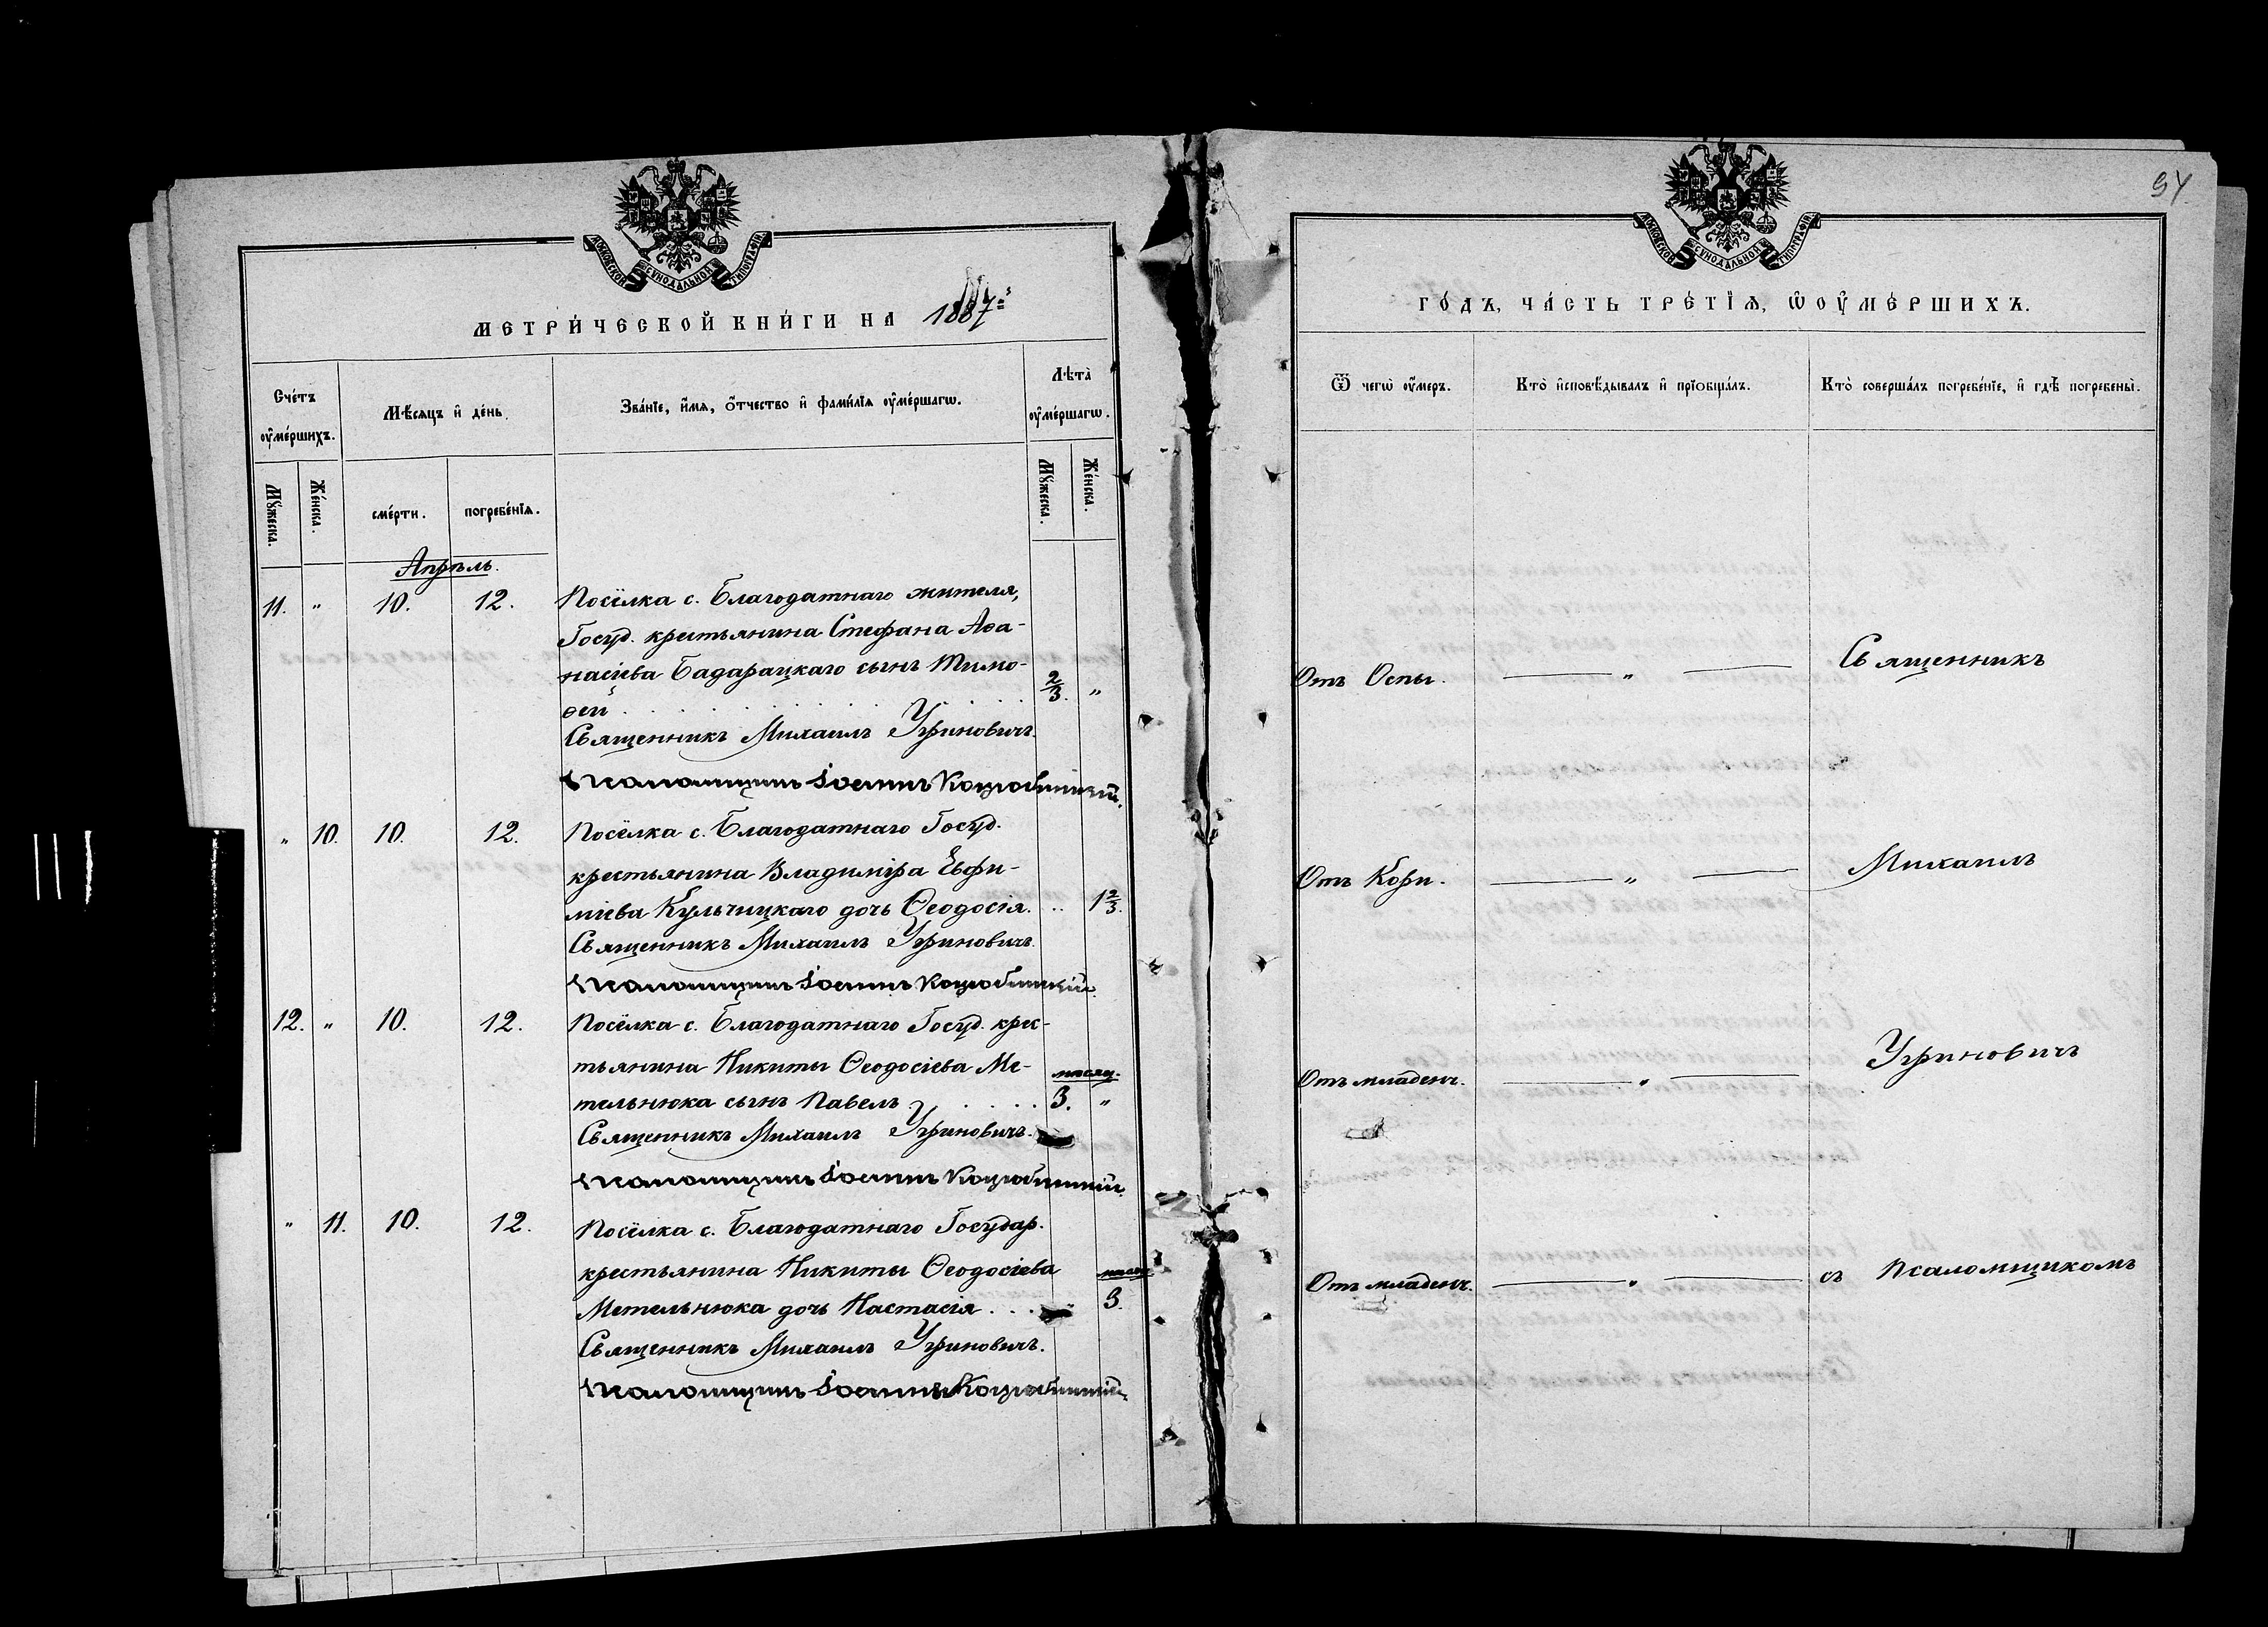 МОСКОВСКОЙ СѴНОДАЛЬНОЙ ТИПОГРАФІИ
МЕТРИ́ЧЕСКОЙ КНИ́ГИ НА 1887
Сче́тъ оу҆ме́ршихъ.
Мѣ́сяцъ и҆ де́нь
Зва́нїе, и҆́мѧ, ѻ҆́тчество и҆ фами́лїѧ оу҆ме́ршагѡ.
Лѣта̀ оу҆ме́ршагѡ.
Мꙋ́жеска.
Же́нска.
сме́рти.
погребе́нїѧ.
Мꙋ́жеска.
Же́нска.
Апрѣль.
11. " 10. 12. Посёлка с. Благодатнаго жителя,
Госуд. крестьянина Стефана Аѳа-
насіева Бадарацкаго сынъ Тимо-
ѳей 2/3. "
Священникъ Михаилъ Угриновичъ.
Псаломщикъ Іоаннъ Коцюбинскій.
" 10. 10. 12. Посёлка с. Благодатнаго Госуд.
крестьянина Владиміра Евфи-
міева Кульчицкаго дочь Ѳеодосія. .. 1 2/3.
Священникъ Михаилъ Угриновичъ.
Псаломщикъ Іоаннъ Коцюбинскій.
12. " 10. 12. Посёлка с. Благодатнаго Госуд. крес-
тьянина Никиты Ѳеодосіева Ме- мѣсяц.
тельнюка сынъ Павелъ 3. "
Священникъ Михаилъ Угриновичъ.
Псаломщикъ Іоаннъ Коцюбинскій.
" 11. 10. 12. Посёлка с. Благодатнаго Государ.
крестьянина Никиты Ѳеодосіева мѣсяц
Метельнюка дочь Настасія 3.
Священникъ Михаилъ Угриновичъ.
Псаломщикъ Іоаннъ Коцюбинскій.
94
МОСКОВСКОЙ СѴНОДАЛЬНОЙ ТИПОГРАФІИ
ГО́ДЪ, ЧА́СТЬ ТРЕ́ТЇѦ, Ѡ҆ ОУ҆МЕ́РШИХЪ.
Ѿ чегѡ̀ оу҆́меръ.
Кто̀ и҆сповѣ́дывалъ и҆ прїѻбща́лъ.
Кто̀ соверша́лъ погребе́нїе, и҆ гдѣ̀ погребены̀.
Отъ Оспы. " Священникъ
Отъ Кори. " Михаилъ
Отъ младенч. " Угриновичъ
Отъ младенч. " съ Псаломщикомъ